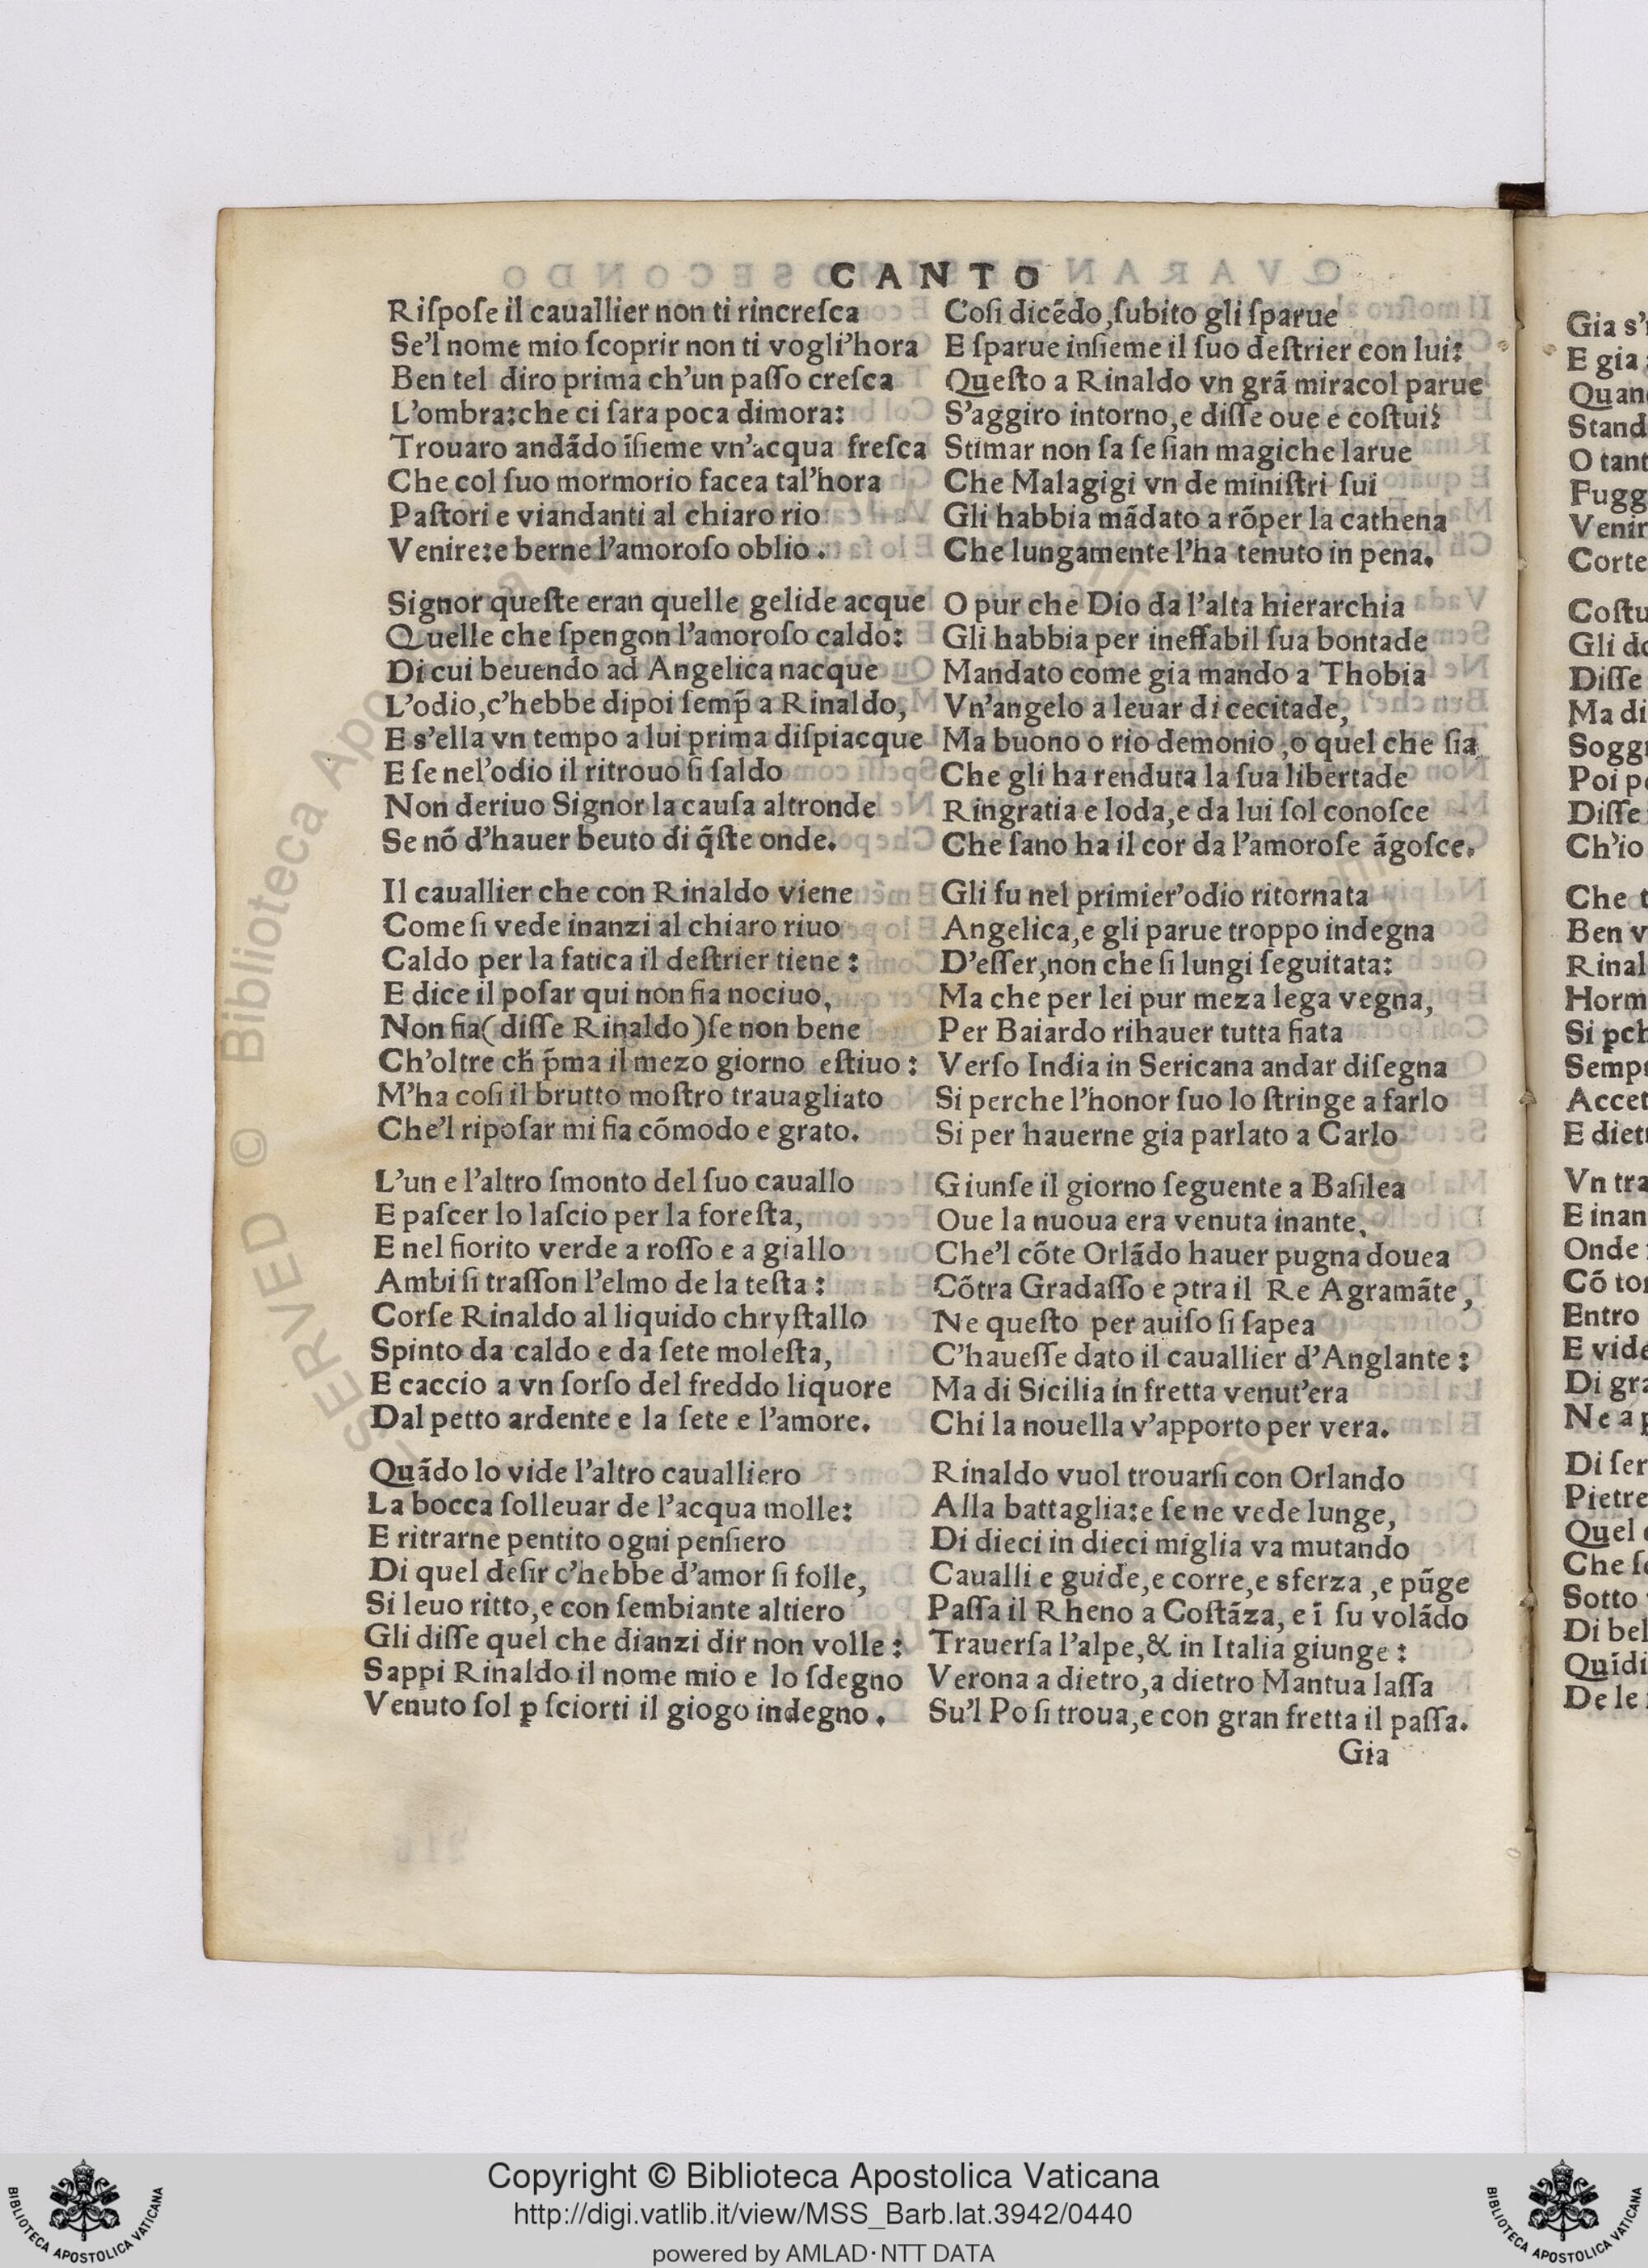 CANTO
Riſpoſe il cauallier non ti rincreſca
Se'l nome mio ſcoprir non ti vogli'hora
Ben tel diro prima ch'un paſſo creſca
L'ombra:che ci ſara poca dimora:
Trouaro andãdo ĩſieme vn'acqua freſca
Che col ſuo mormorio facea tal'hora
Paſtori e viandanti al chiaro rio
Venire:e berne l'amoroſo oblio.

Signor queſte eran quelle gelide acque
Quelle che ſpengon l'amoroſo caldo:
Di cui beuendo ad Angelica nacque
L'odio,c'hebbe dipoi ſemp̃ a Rinaldo,
E s'ella vn tempo a lui prima diſpiacque
E ſe nel'odio il ritrouo ſi ſaldo
Non deriuo Signor la cauſa altronde
Se nõ d'hauer beuto di q̃ſte onde.

Il cauallier che con Rinaldo viene
Come ſi vede inanzi al chiaro riuo
Caldo per la fatica il deſtrier tiene:
E dice il poſar qui non fia nociuo,
Non fia(diſſe Rinaldo)ſe non bene
Ch'oltre ch̃ p̃ma il mezo giorno eſtiuo:
M'ha coſi il brutto moſtro trauagliato
Che'l ripoſar mi fia cõmodo e grato.

L'un e l'altro ſmonto del ſuo cauallo
E paſcer lo laſcio per la foreſta,
E nel fiorito verde a roſſo e a giallo
Ambi ſi traſſon l'elmo de la teſta:
Corſe Rinaldo al liquido chryſtallo
Spinto da caldo e da ſete moleſta,
E caccio a vn ſorſo del freddo liquore
Dal petto ardente e la ſete e l'amore.

Quãdo lo vide l'altro caualliero
La bocca ſolleuar de l'acqua molle:
E ritrarne pentito ogni penſiero
Di quel deſir c'hebbe d'amor ſi folle,
Si leuo ritto,e con ſembiante altiero
Gli diſſe quel che dianzi dir non volle:
Sappi Rinaldo il nome mio e lo ſdegno
Venuto ſol ꝑ ſciorti il giogo indegno.

Coſi dicẽdo,ſubito gli ſparue
E ſparue inſieme il ſuo deſtrier con lui:
Queſto a Rinaldo vn grã miracol parue
S'aggiro intorno,e diſſe oue e coſtui?
Stimar non ſa ſe ſian magiche larue
Che Malagigi vn de miniſtri ſui
Gli habbia mãdato a rõper la cathena
Che lungamente l'ha tenuto in pena.

O pur che Dio da l'alta hierarchia
Gli habbia per ineffabil ſua bontade
Mandato come gia mando a Thobia
Vn'angelo a leuar di cecitade,
Ma buono o rio demonio,o quel che ſia
Che gli ha renduta la ſua libertade
Ringratia e loda,e da lui ſol conoſce
Che ſano ha il cor da l'amoroſe ãgoſce.

Gli fu nel primier'odio ritornata
Angelica,e gli parue troppo indegna
D'eſſer,non che ſi lungi ſeguitata:
Ma che per lei pur meza lega vegna,
Per Baiardo rihauer tutta fiata
Verſo India in Sericana andar diſegna
Si perche l'honor ſuo lo ſtringe a farlo
Si per hauerne gia parlato a Carlo

Giunſe il giorno ſeguente a Baſilea
Oue la nuoua era venuta inante,
Che'l cõte Orlãdo hauer pugna douea
Cõtra Gradaſſo e ꝯtra il Re Agramãte,
Ne queſto per auiſo ſi ſapea
C'haueſſe dato il cauallier d'Anglante:
Ma di Sicilia in fretta venut'era
Chi la nouella v'apporto per vera.

Rinaldo vuol trouarſi con Orlando
Alla battaglia:e ſe ne vede lunge,
Di dieci in dieci miglia va mutando
Caualli e guide,e corre,e sferza,e pũge
Paſſa il Rheno a Coſtãza, e ĩ ſu volãdo
Trauerſa l'alpe,& in Italia giunge:
Verona a dietro,a dietro Mantua laſſa
Su'l Po ſi troua,e con gran fretta il paſſa.
Gia

Gia s'
E gia
Quan
Stand
O tant
Fugg
Venir
Corte

Coſtu
Gli do
Diſſe
Ma di
Soggi
Poi p
Diſſe
Ch'io

Che t
Ben v
Rinal
Horm
Si ꝑch
Semp
Accet
E diet

Vn tra
E inan
Onde
Cõ to
Entro
E vide
Di gra
Ne a p

Di ſer
Pietre
Quel
Che ſe
Sotto
Di bel
Quidi
De le

Copyright © Biblioteca Apostolica Vaticana
http://digi.vatlib.it/view/MSS_Barb.lat.3942/0440
powered by AMLAD·NTT DATA
BIBLIOTECA APOSTOLICA VATICANA
BIBLIOTECA APOSTOLICA VATICANA